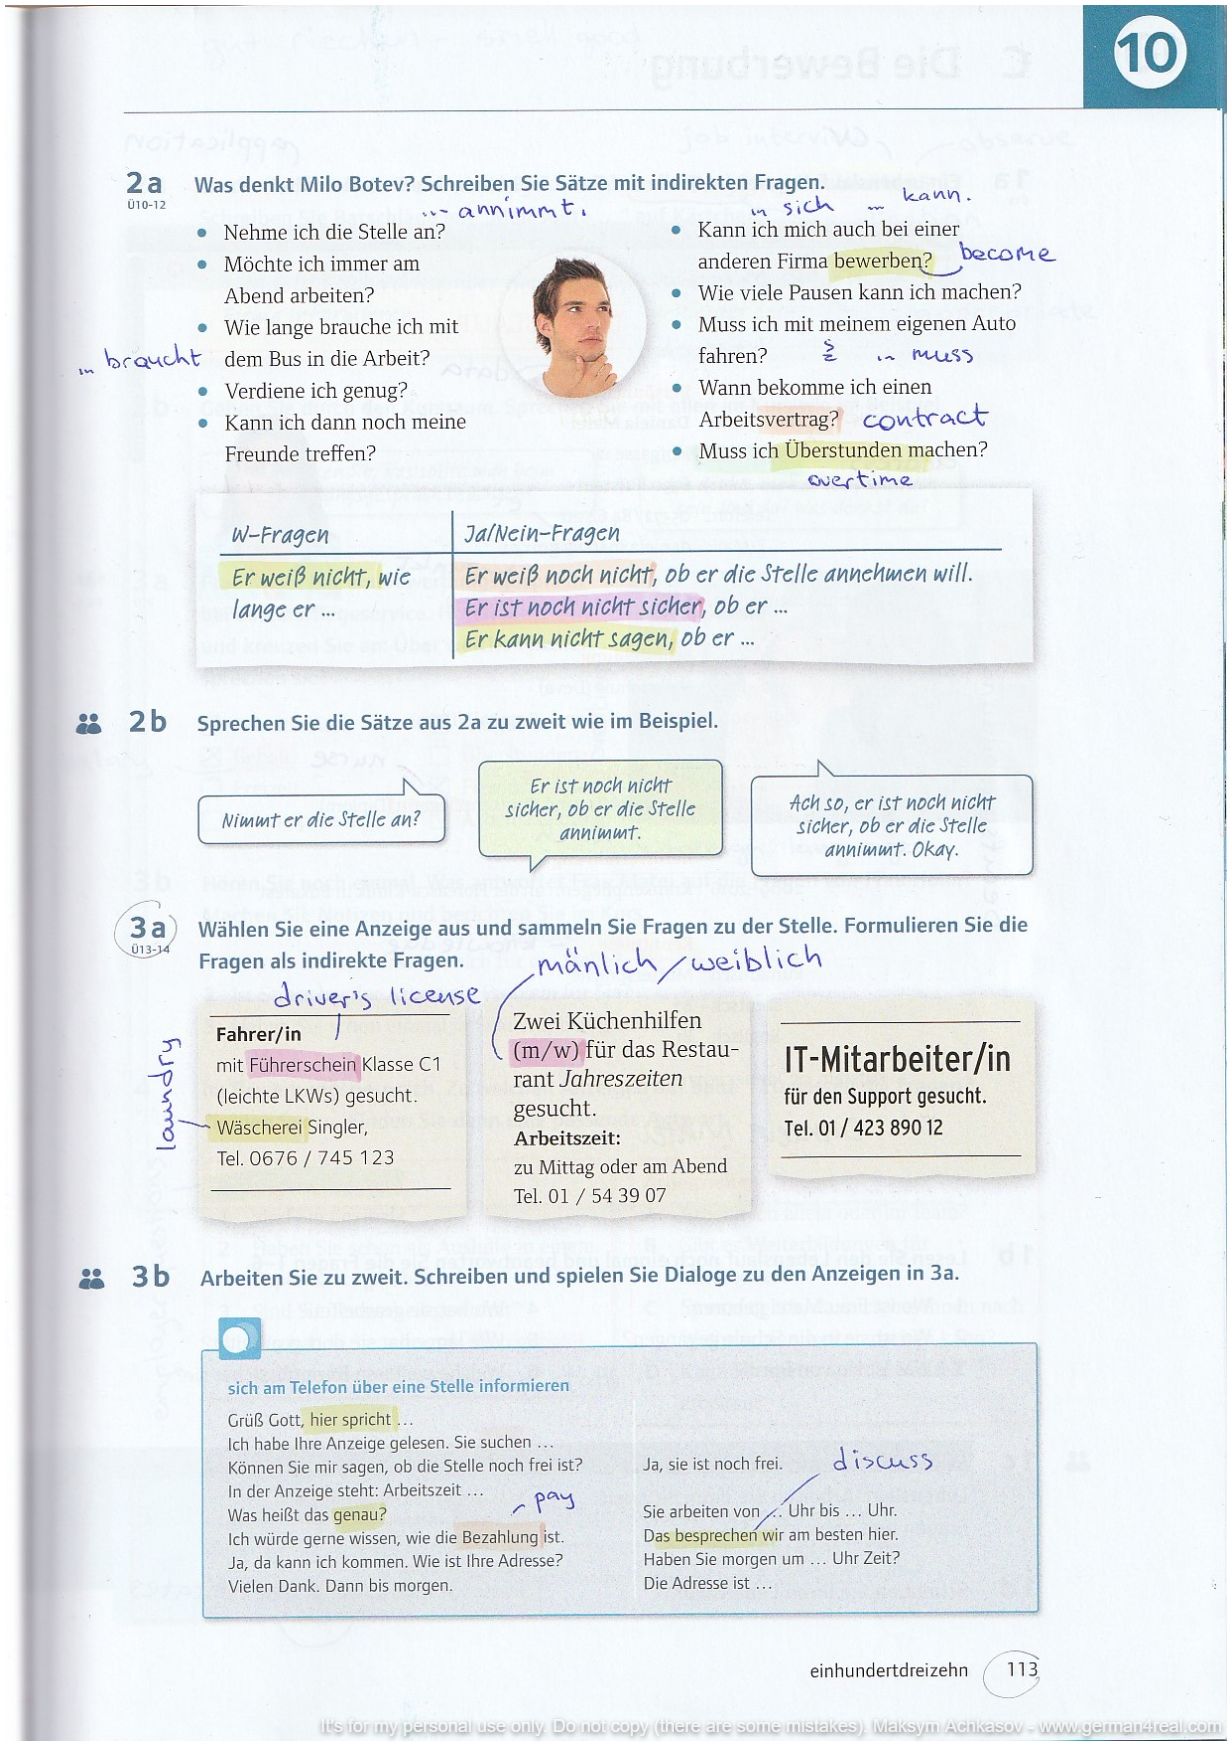 10
2a Was denkt Milo Botev? Schreiben Sie Sätze mit indirekten Fragen.
Ü10-12
... annimmt.
• Nehme ich die Stelle an?
• Möchte ich immer am
Abend arbeiten?
• Wie lange brauche ich mit
... braucht
dem Bus in die Arbeit?
• Verdiene ich genug?
• Kann ich dann noch meine
Freunde treffen?
... sich ... kann.
• Kann ich mich auch bei einer
anderen Firma bewerben?
become
• Wie viele Pausen kann ich machen?
• Muss ich mit meinem eigenen Auto
fahren?
... muss
• Wann bekomme ich einen
Arbeitsvertrag? contract
• Muss ich Überstunden machen?
overtime
W-Fragen Ja/Nein-Fragen
Er weiß nicht, wie
lange er ...
Er weiß noch nicht, ob er die Stelle annehmen will.
Er ist noch nicht sicher, ob er ...
Er kann nicht sagen, ob er ...
2b Sprechen Sie die Sätze aus 2a zu zweit wie im Beispiel.
Nimmt er die Stelle an?
Er ist noch nicht
sicher, ob er die Stelle
annimmt.
Ach so, er ist noch nicht
sicher, ob er die Stelle
annimmt. Okay.
3a Wählen Sie eine Anzeige aus und sammeln Sie Fragen zu der Stelle. Formulieren Sie die
Ü13-14
Fragen als indirekte Fragen.
mänlich / weiblich
driver's license
laundry
Fahrer/in
mit Führerschein Klasse C1
(leichte LKWs) gesucht.
Wäscherei Singler,
Tel. 0676 / 745 123
Zwei Küchenhilfen
(m/w) für das Restau-
rant Jahreszeiten
gesucht.
Arbeitszeit:
zu Mittag oder am Abend
Tel. 01 / 54 39 07
IT-Mitarbeiter/in
für den Support gesucht.
Tel. 01 / 423 890 12
3b Arbeiten Sie zu zweit. Schreiben und spielen Sie Dialoge zu den Anzeigen in 3a.
sich am Telefon über eine Stelle informieren
Grüß Gott, hier spricht ...
Ich habe Ihre Anzeige gelesen. Sie suchen ...
Können Sie mir sagen, ob die Stelle noch frei ist?
In der Anzeige steht: Arbeitszeit ...
Was heißt das genau?
pay
Ich würde gerne wissen, wie die Bezahlung ist.
Ja, da kann ich kommen. Wie ist Ihre Adresse?
Vielen Dank. Dann bis morgen.
Ja, sie ist noch frei.
discuss
Sie arbeiten von ... Uhr bis ... Uhr.
Das besprechen wir am besten hier.
Haben Sie morgen um ... Uhr Zeit?
Die Adresse ist ...
einhundertdreizehn 113
It's for my personal use only. Do not copy (there are some mistakes). Maksym Achkasov - www.german4real.com